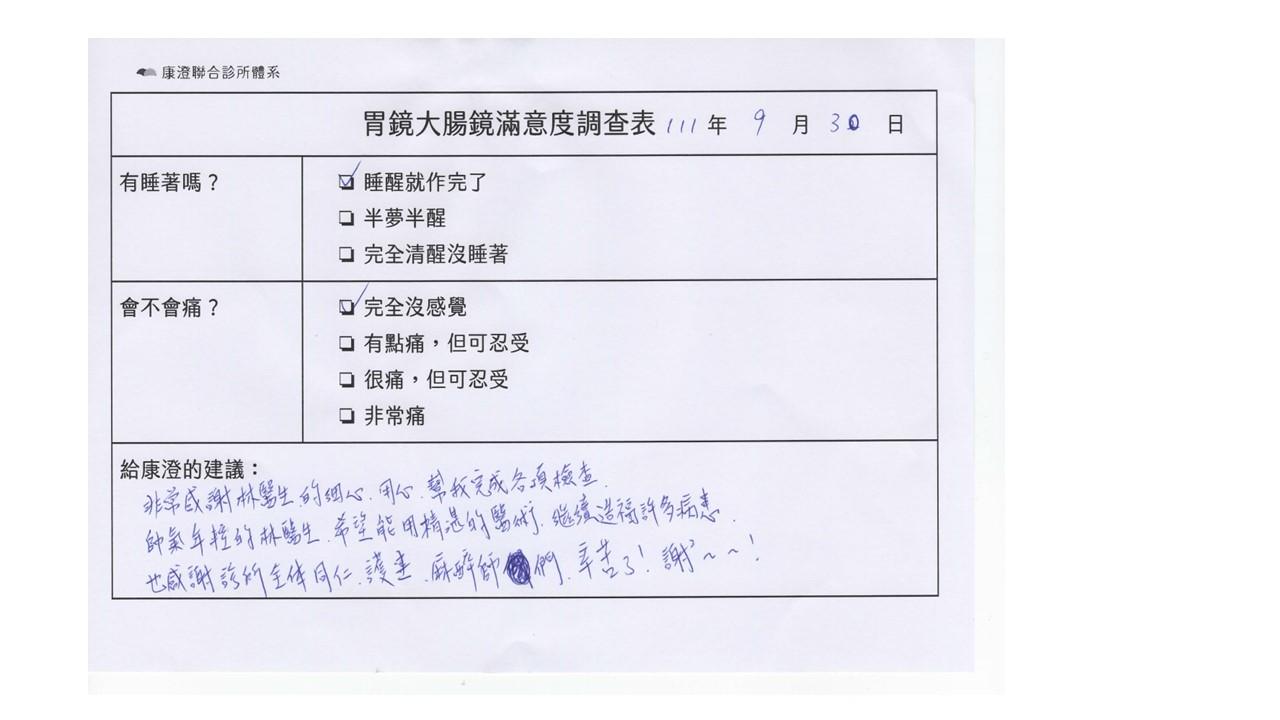 康澄聯合診所體系
胃鏡大腸鏡滿意度調查表 111 年 9 月 30 日
有睡著嗎？
睡醒就作完了
半夢半醒
完全清醒沒睡著
會不會痛？
完全沒感覺
有點痛，但可忍受
很痛，但可忍受
非常痛
給康澄的建議：
非常感謝林醫生的細心、用心、幫我完成各項檢查.
帥氣年輕的林醫生、希望能用精湛的醫術、繼續造福許多病患.
也感謝診所全体同仁、護士、麻醉師們、辛苦了！謝²～～！